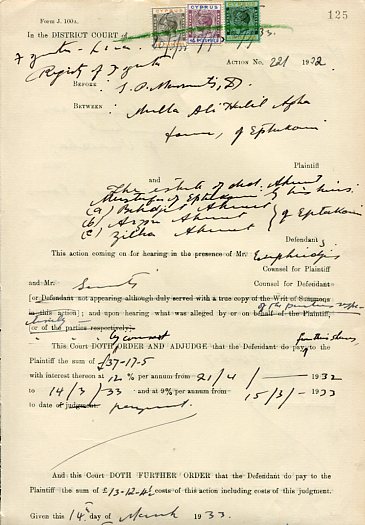 125
Form J. 100A.
CYPRUS CYPRUS
In the DISTRICT COURT of
Action No. 221 1932
Registry of
Before
Between Mulla Ali Halil Agha
of Eptakomi
Plaintiff
and
The estate of decd. Ahmed
Mustafa of Eptakomi by his heirs.
(a) Behidje Ahmet
(b) Ahmet of Eptakomi
(c) Zilha Ahmet
Defendant s
This action coming on for hearing in the presence of Mr.
Counsel for Plaintiff
and Mr. Counsel for Defendant s
[or Defendant not appearing although duly served with a true copy of the Writ of Summons
in this action]; and upon hearing what was alleged by or on behalf of the Plaintiff, of the parties
or of the parties respectively
by consent
This Court DOTH ORDER AND ADJUDGE that the Defendant s do pay to the
Plaintiff the sum of £37-17-5
with interest thereon at 12 % per annum from 21/4/ 1932
to 14/3/33 and at 9% per annum from 15/3/ 1933
to date of judgment. payment.
And this Court DOTH FURTHER ORDER that the Defendant s do pay to the
Plaintiff the sum of £3-12-4½ costs of this action including costs of this judgment.
Given this 14th day of March 1933.